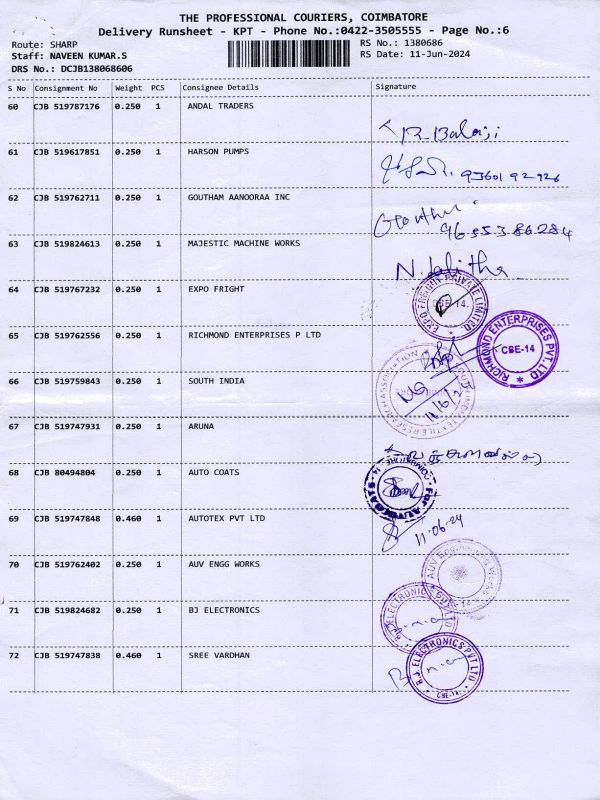 THE PROFESSIONAL COURIERS, COIMBATORE
Delivery Runsheet - KPT - Phone No.:0422-3505555 - Page No.:6
Route: SHARP RS No.: 1380686
Staff: NAVEEN KUMAR.S RS Date: 11-Jun-2024
DRS No.: DCJB138068606
S No Consignment No Weight PCS Consignee Details Signature
60 CJB 519787176 0.250 1 ANDAL TRADERS
R. Balaji
61 CJB 519617851 0.250 1 HARSON PUMPS
93601 92926
62 CJB 519762711 0.250 1 GOUTHAM AANOORAA INC
Gouthu
96553 86284
63 CJB 519824613 0.250 1 MAJESTIC MACHINE WORKS
N. Lalitha
64 CJB 519767232 0.250 1 EXPO FREIGHT
EXPO FREIGHT PRIVATE LIMITED
CBE-14.
65 CJB 519762556 0.250 1 RICHMOND ENTERPRISES P LTD
RICHMOND ENTERPRISES PVT. LTD
CBE-14
66 CJB 519759843 0.250 1 SOUTH INDIA
SOUTH INDIA TEXTILE RESEARCH ASSOCIATION
11/6/2
67 CJB 519747931 0.250 1 ARUNA
68 CJB 80494804 0.250 1 AUTO COATS
COIMBATORE - 14
69 CJB 519747848 0.460 1 AUTOTEX PVT LTD
11-06-24
70 CJB 519762402 0.250 1 AUV ENGG WORKS
AUV
71 CJB 519824682 0.250 1 BJ ELECTRONICS
B.J. ELECTRONICS
72 CJB 519747838 0.460 1 SREE VARDHAN
B.J. ELECTRONICS PVT LTD
CBE-14.